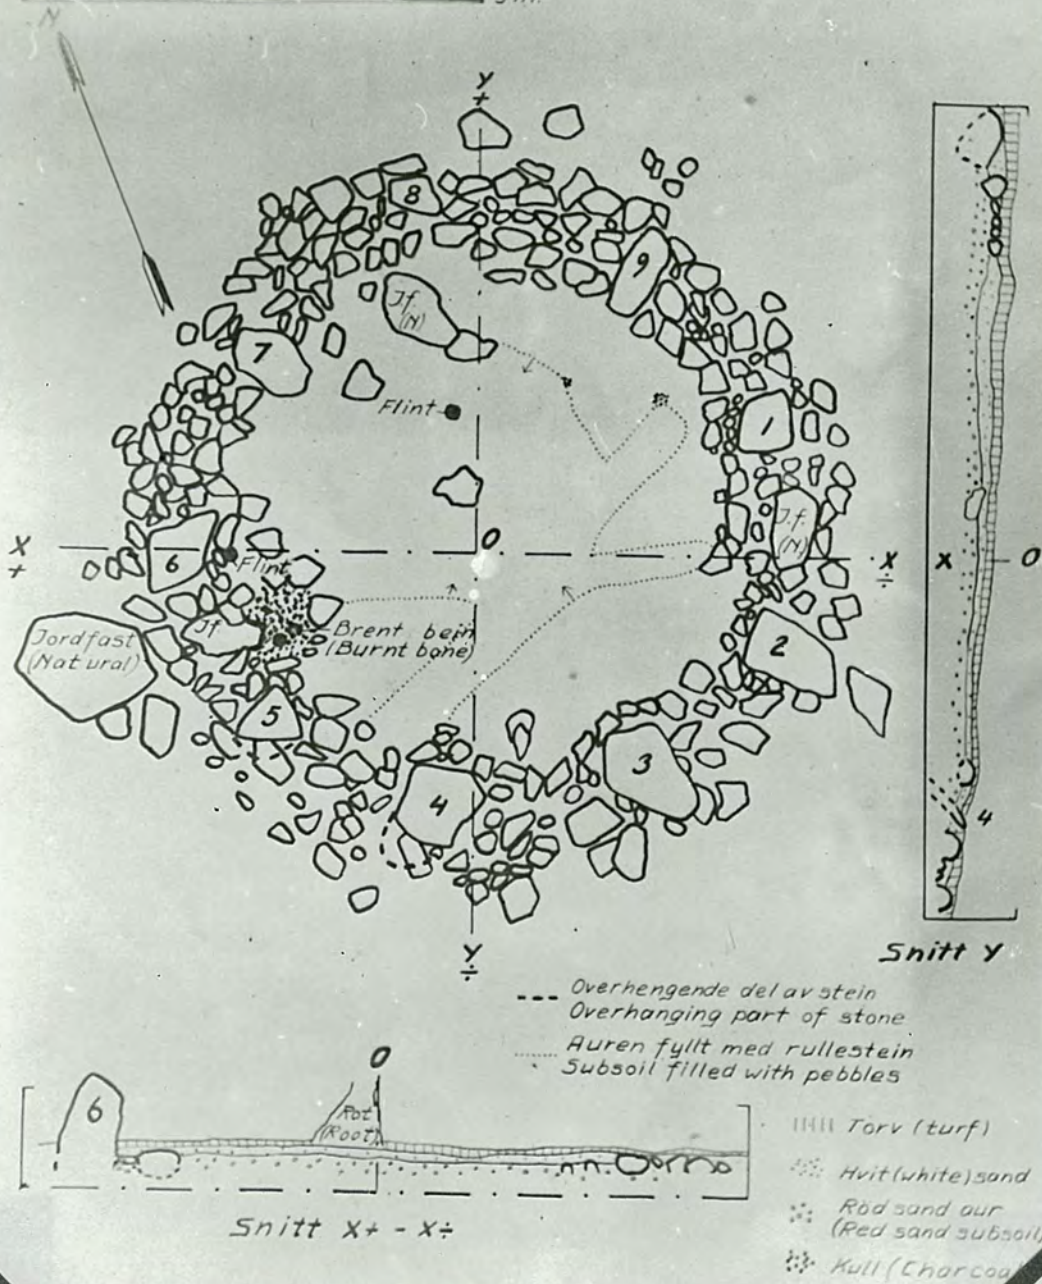 N
Y
+
8
9
J.f.
(N)
7
Flint
1
O
X
+
6
Flint
J.f.
(N)
X
÷
X
O
Jordfast
(Natural)
Jf
Brent bein
(Burnt bone)
2
5
3
4
4
Y
÷
Snitt Y
Overhengende del av stein
Overhanging part of stone
Auren fyllt med rullestein
Subsoil filled with pebbles
O
6
Rot
(Root)
Torv (turf)
Hvit (white) sand
Röd sand aur
(Red sand subsoil)
Kull (Charcoal
Snitt X+ - X÷